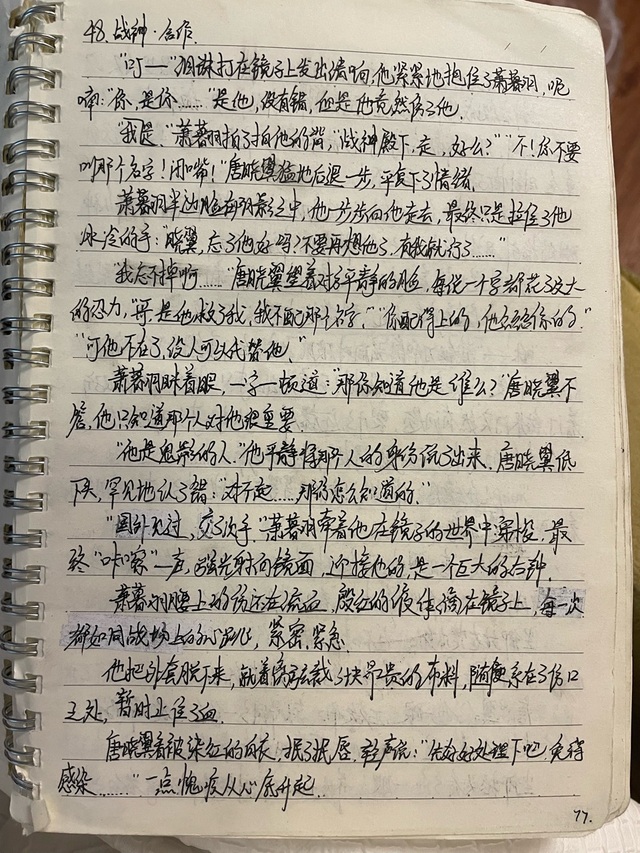 48. 战神·合作.
"叮——"泪珠打在镜子上发出清响,他紧紧地抱住了萧暮洇,呢
喃:"你,是你……"是他,没有错,但是他竟然伤了他.
"我是."萧暮洇拍了拍他的背,"战神殿下,走,好么?""不!你不要
叫那个名字!闭嘴!"唐晓翼猛地后退一步,平复下了情绪.
萧暮洇半边脸在阴影之中,他一步步向他走去,最终只是拉住了他
冰冷的手:"晓翼,忘了他好吗?不要再想他了,有我就行了……"
"我忘不掉啊……"唐晓翼望着对方平静的脸,每说一个字都花了莫大
的忍力,"哥,是他救了我,我不配那个名字.""你配得上的,他留给你的."
"可他不在了,没人可以代替他."
萧暮洇眯着眼,一字一顿道:"那你知道他是谁么?"唐晓翼不
答,他只知道那个人对他很重要.
"他是鬼影的人."他平静将那个人的身份说了出来.唐晓翼低
下头,罕见地认了错:"对不起……那你怎么知道的."
"国外见过,交了次手."萧暮洇牵着他在镜子的世界中穿梭,最
终"咔嚓"一声,强光射向镜面,迎接他的,是一个巨大的古钟.
萧暮洇腰上的伤还在流血,殷红的液体滴在镜子上,每一次
都如同战场上的心跳,紧密,紧急.
他把外套脱下来,就着镜子裁了块昂贵的布料,随便系在了伤口
之处,暂时止住了血.
唐晓翼看被染红的白衣,抿了抿唇,轻声说:"先好好处理下吧,免得
感染……"一点愧疚从心底升起.
77.